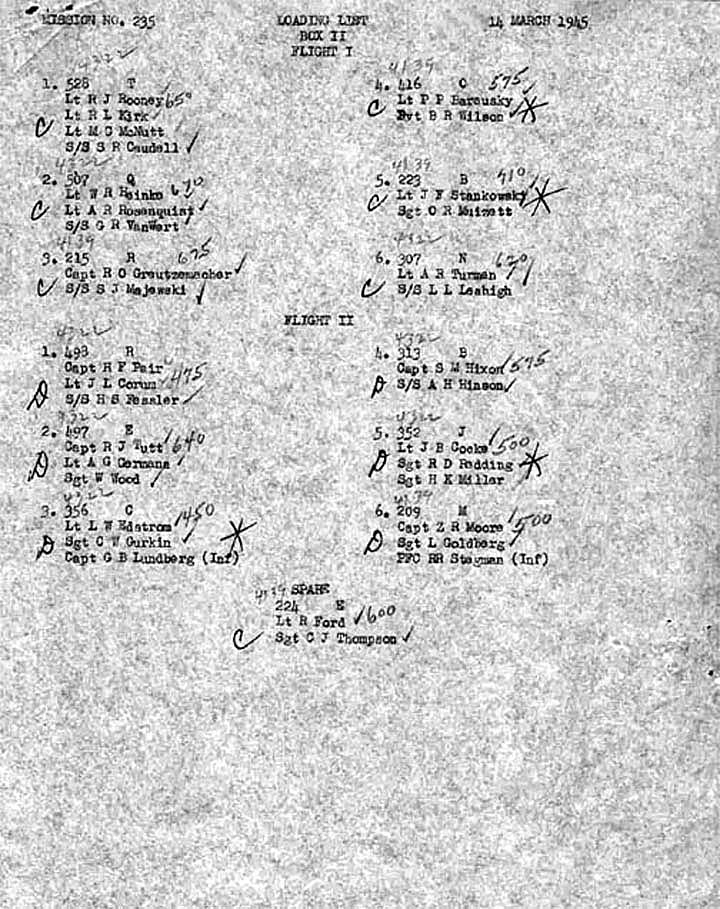 MISSION NO. 235 LOADING LIST 14 MARCH 1945
BOX II
FLIGHT I
4322
1. 528 T
Lt R J Rooney 650
Lt R L Kirk
C Lt M C McNutt
S/S S R Caudell
4322
2. 507 Q
Lt W R Heinke 670
C Lt A R Rosenquist
S/S G R VanWert
4139
3. 215 R 675
Capt R O Greutzemacher
C S/S S J Majewski
4139
4. 416 O 575
Lt P P Barausky
C Pvt B R Wilson
4139
5. 223 B 410
Lt J F Stankowsky
C Sgt O R Muizett
4322
6. 307 N 620
Lt A R Turman
C S/S L L Leahigh
FLIGHT II
4322
1. 493 R
Capt R F Fair
D Lt J L Corum 475
S/S H S Fessler
4322
2. 497 E
Capt R J Tutt 640
D Lt A G Germann
Sgt W Wood
4322
3. 356 C
Lt L W Edstrom 450
D Sgt C W Gurkin
Capt G B Lundberg (Inf)
4322
4. 313 B
Capt S M Hixon 575
D S/S A H Hinson
4322
5. 352 J
Lt J B Cooke 500
D Sgt R D Redding
Sgt H K Miller
4139
6. 209 M
Capt Z R Moore 500
D Sgt L Goldberg
PFC RR Stegman (Inf)
4139 SPARE
224 E
Lt R Ford 600
C Sgt C J Thompson